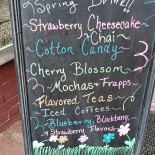 Spring Drinks!!
Strawberry Cheesecake
Chai
Cotton Candy
Cherry Blossom
Mochas + Frapps
Flavored Teas
Iced Coffees
Blueberry, Blackberry,
+ Strawberry Flavors